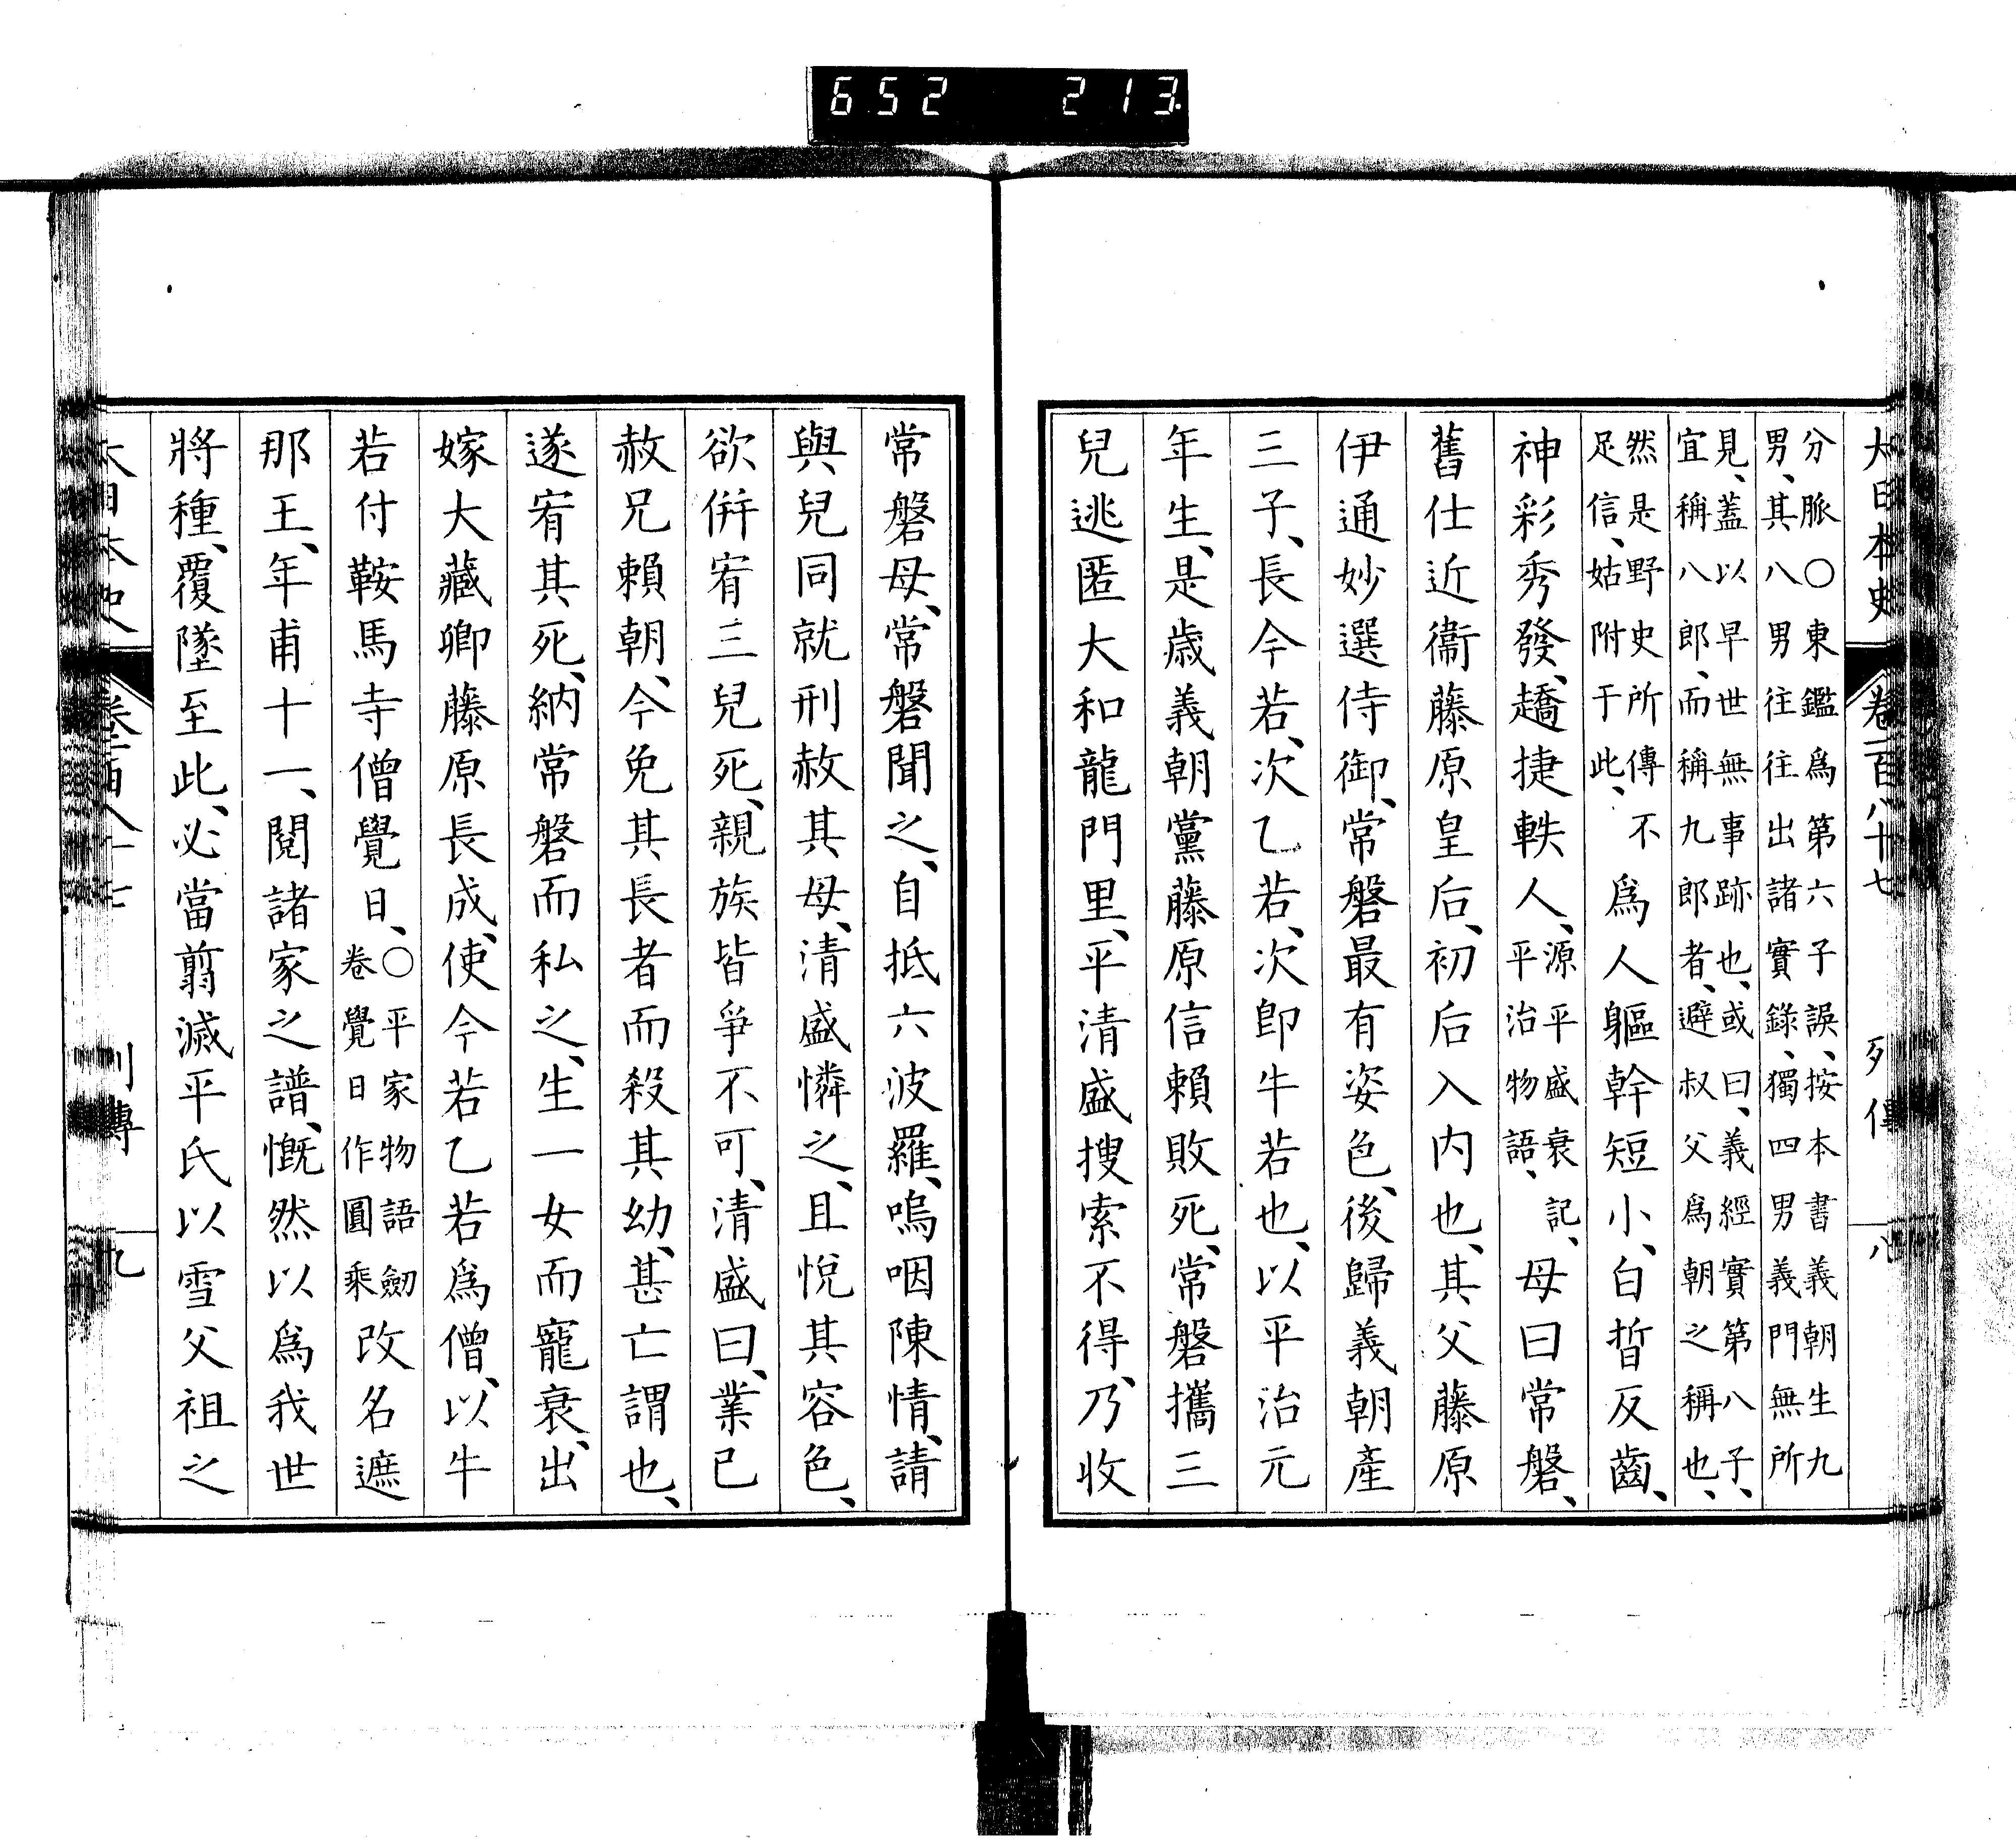 652 213
大日本史 卷一百八十七 列傳 八
分脈○東鑑爲第六子誤、按本書義朝生九
男、其八男往往出諸實錄、獨四男義門無所
見、蓋以早世無事跡也、或曰、義經實第八子、
宜稱八郎、而稱九郎者、避叔父爲朝之稱也、
然是野史所傳不
足信、姑附于此、
爲人軀幹短小、白晳反齒、
神彩秀發、趫捷軼人、
源平盛衰記、
平治物語、
母曰常磐、
舊仕近衞藤原皇后、初后入內也、其父藤原
伊通妙選侍御、常磐最有姿色、後歸義朝產
三子、長今若、次乙若、次卽牛若也、以平治元
年生、是歲義朝黨藤原信賴敗死、常磐攜三
兒逃匿大和龍門里、平清盛搜索不得、乃收
常磐母、常磐聞之、自抵六波羅、嗚咽陳情、請
與兒同就刑赦其母、清盛憐之、且悅其容色、
欲倂宥三兒死、親族皆爭不可、清盛曰、業已
赦兄賴朝、今免其長者而殺其幼、甚亡謂也、
遂宥其死、納常磐而私之、生一女而寵衰、出
嫁大藏卿藤原長成、使今若乙若爲僧、以牛
若付鞍馬寺僧覺日、
○平家物語劒
卷覺日作圓乘
改名遮
那王、年甫十一、閱諸家之譜、慨然以爲我世
將種、覆墜至此、必當翦滅平氏以雪父祖之
大日本史 卷一百八十七 列傳 九